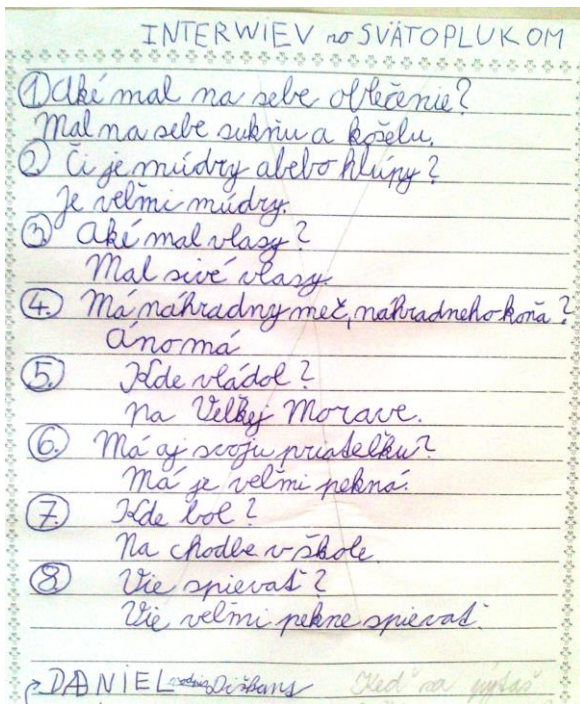 INTERWIEV so SVÄTOPLUKOM
1 Aké mal na sebe oblečenie?
Mal na sebe sukňu a košelu.
2 Či je múdry abebo hlúpy?
Je veľmi múdry.
3 Aké mal vlasy?
Mal sivé vlasy.
4. Má náhradny meč, náhradneho koňa?
Áno má
5. Kde vládol?
Na Veľkej Morave.
6. Má aj svoju priatelku?
Má je veľmi pekná.
7. Kde bol?
Na chodbe v škole.
8 Vie spievať?
Vie veľmi pekne spievať.
DANIEL
Keď sa pýtaš